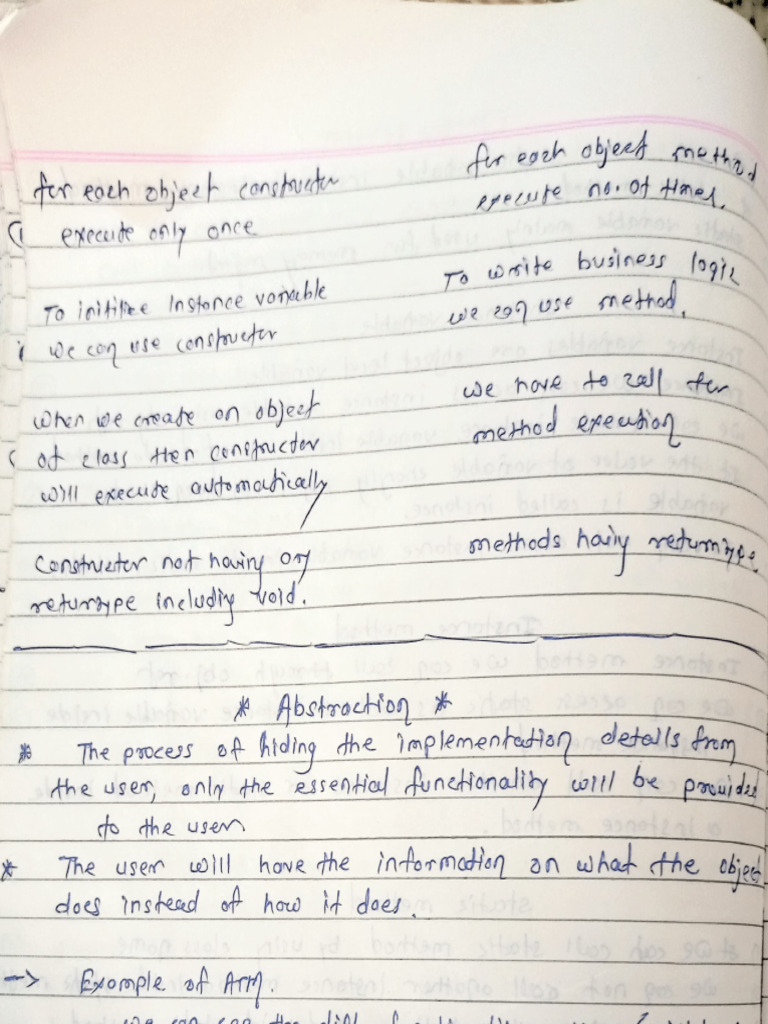 for each object constructor
execute only once
for each object method
execute no. of times.
To initilize Instance variable
we can use constructor
To write business logic
we can use method.
when we create an object
of class then constructor
will execute automatically
we have to call for
method execution
Constructor not having any
returntype including void.
methods having returntype.
* Abstraction *
* The process of hiding the implementation details from
the user, only the essential functionality will be provided
to the user
* The user will have the information on what the object
does instead of how it does.
→ Example of ATM.
we can see the